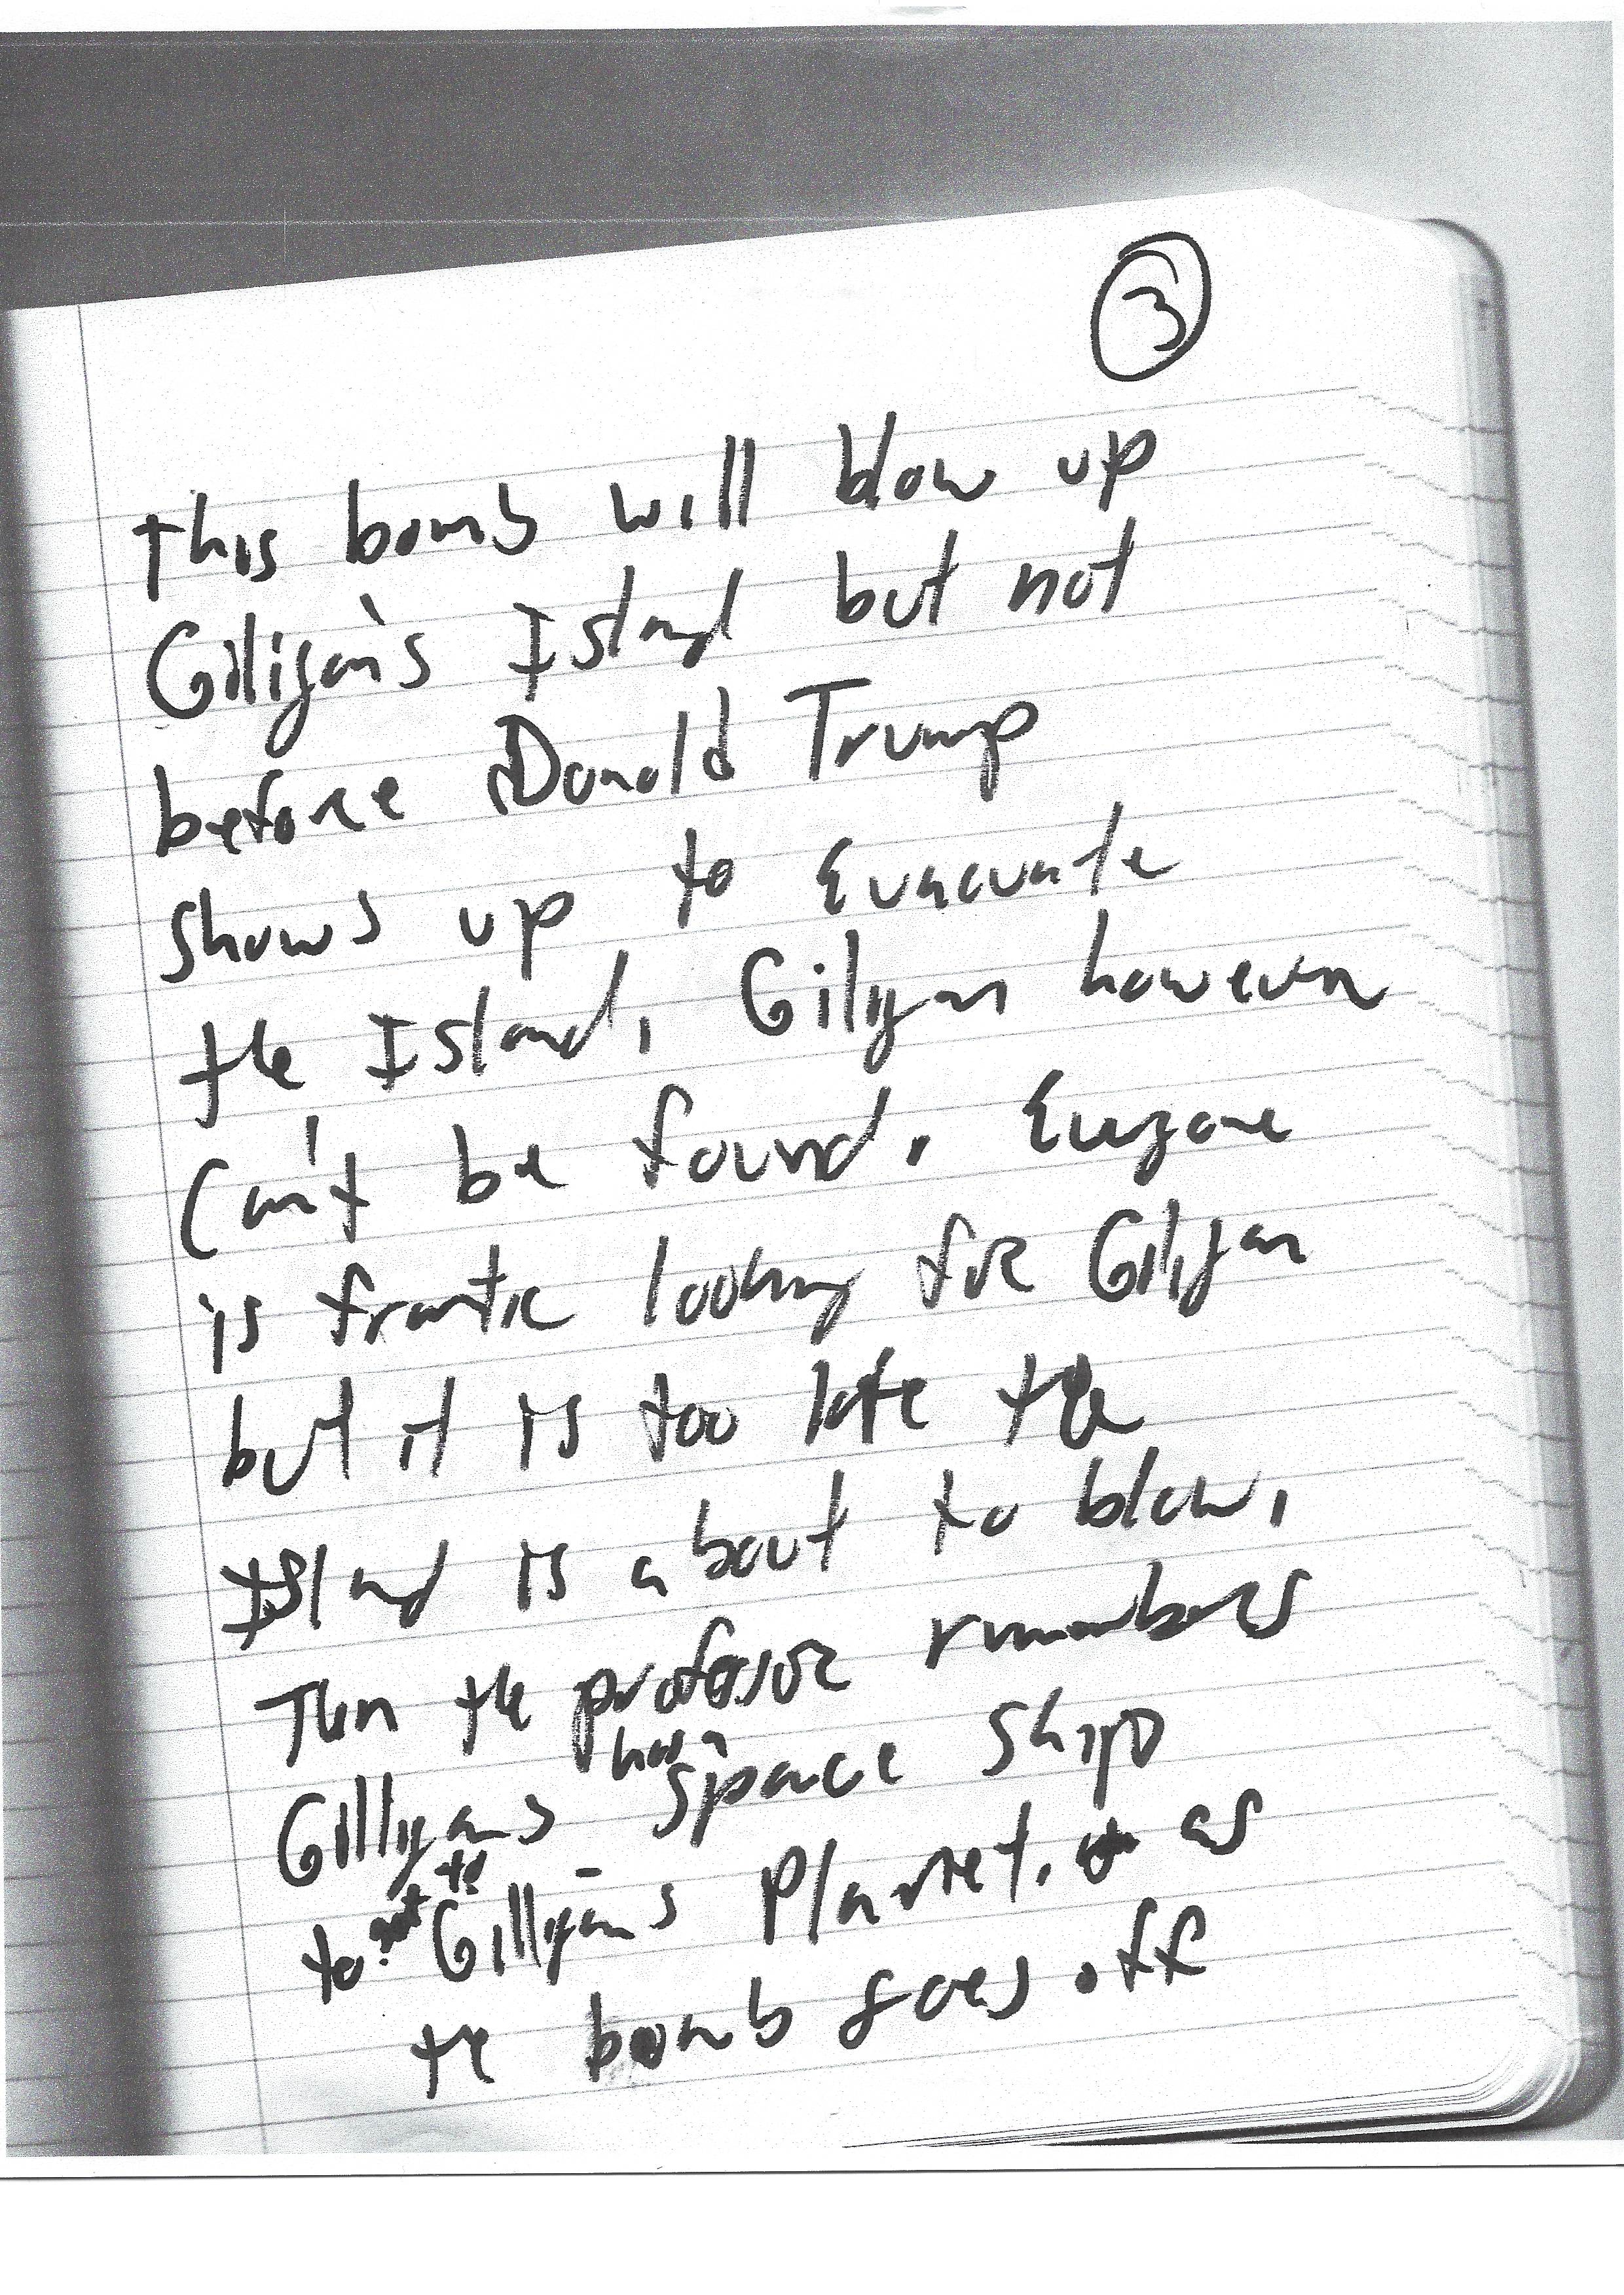 3
This bomb will blow up
Giligan's Island but not
before Donald Trump
shows up to Evacuate
the Island, Giligan however
can't be found. Everyone
is frantic looking for Giligan
but it is too late the
Island is about to blow,
Then the professor remembers
Gilligans has a space ship
to get to Gilligans Planet. as
the bomb goes off